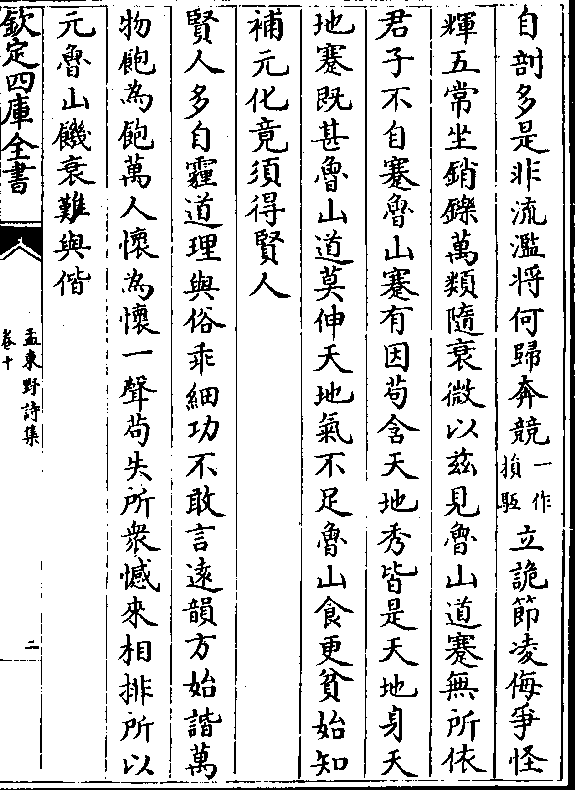 自剖多是非流濫將何歸奔競一作損駈立詭節凌侮爭怪
輝五常坐銷鑠萬類隨衰微以茲見魯山道蹇無所依
君子不自蹇魯山蹇有因苟含天地秀皆是天地身天
地蹇既甚魯山道莫伸天地氣不足魯山食更貧始知
補元化竟須得賢人
賢人多自霾道理與俗乖細功不敢言遠韻方始諧萬
物飽為飽萬人懷為懷一聲苟失所衆憾來相排所以
元魯山饑衰難與偕
欽定四庫全書
孟東野詩集
卷十
二